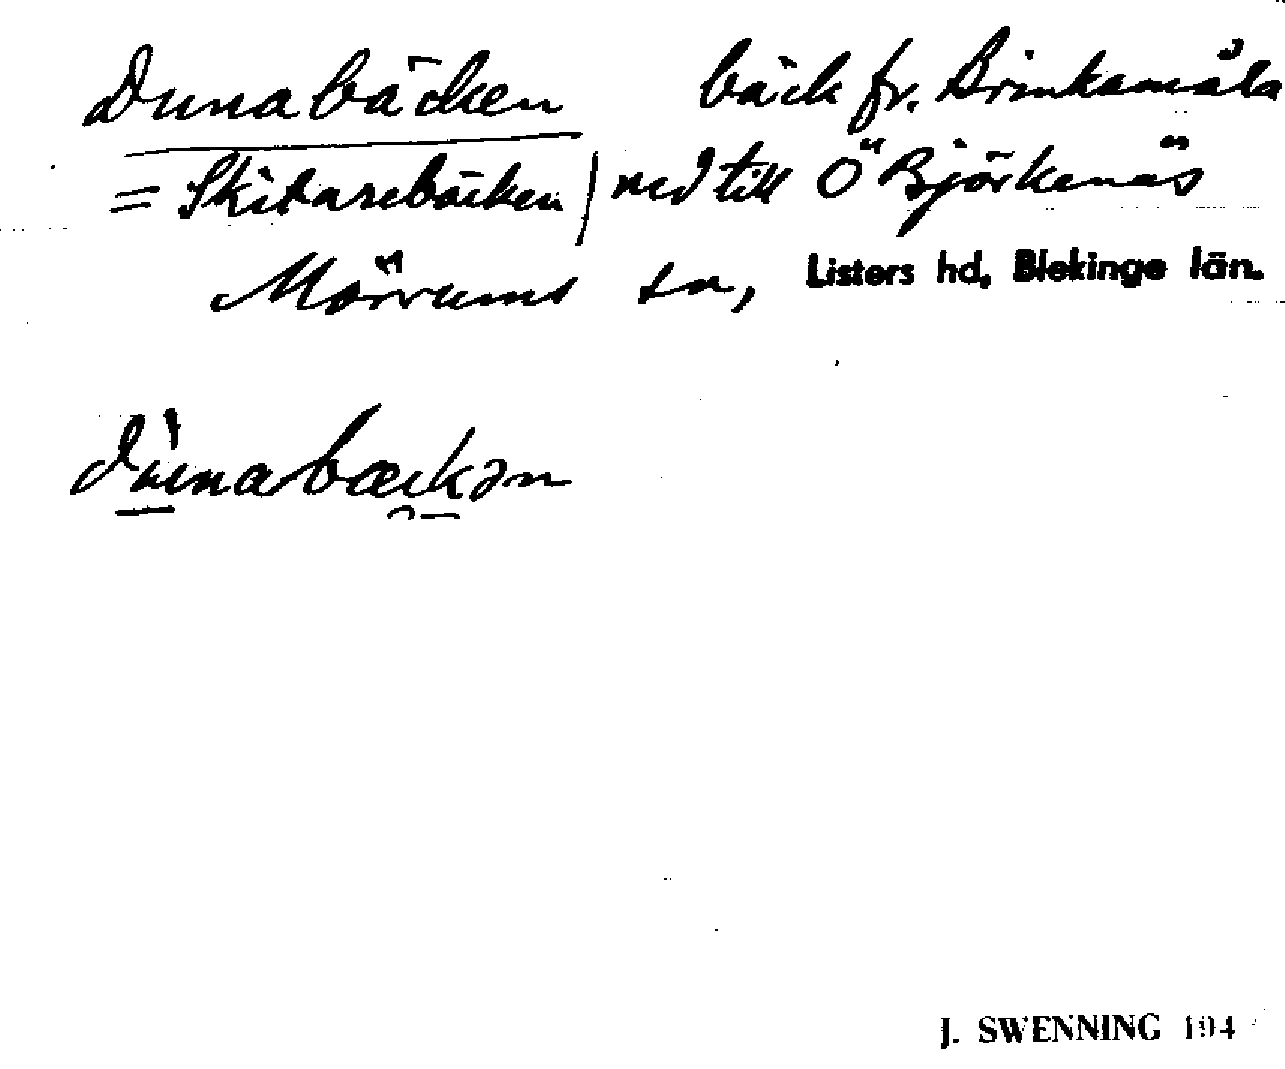 Dunabäcken bäck fr. Brinkamåla
= Skitarebäcken / ned till Ö Björkenäs
Mörrums sn, Listers hd, Blekinge län.
dùnabæckən
J. SWENNING 194